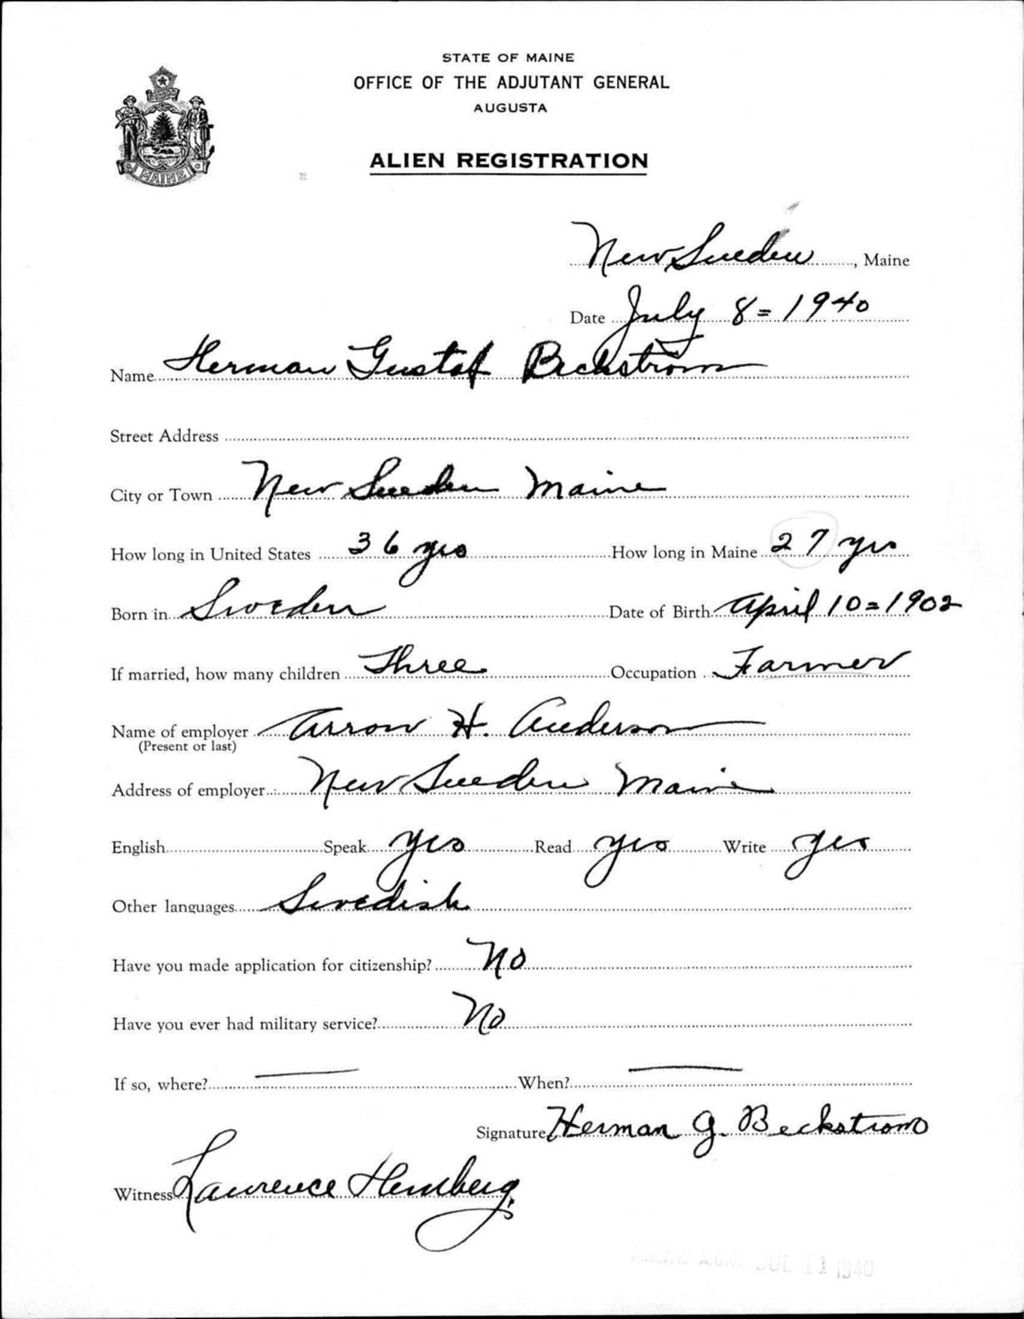 STATE OF MAINE
OFFICE OF THE ADJUTANT GENERAL
AUGUSTA
ALIEN REGISTRATION
MAINE
New Sweden, Maine
Date July 8 = 1940
Name Herman Gustaf Beckstrom
Street Address
City or Town New Sweden Maine
How long in United States 36 yrs How long in Maine 27 yrs
Born in Sweden Date of Birth April 10 = 1902
If married, how many children Three Occupation Farmer
Name of employer Arrow H. Anderson
(Present or last)
Address of employer New Sweden Maine
English Speak yes Read yes Write yes
Other languages Swedish
Have you made application for citizenship? No
Have you ever had military service? No
If so, where? When?
Signature Herman G. Beckstrom
Witness Lawrence Hemberg
JUL 11 1940